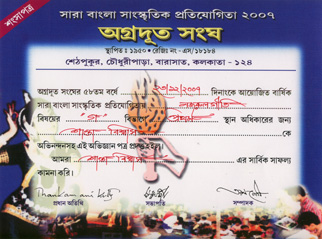 শংসাপত্র
সারা বাংলা সাংস্কৃতিক প্রতিযোগিতা ২০০৭
অগ্রদূত সংঘ
স্থাপিত : ১৯৫০ • রেজিঃ নং - এস/১৮১৮৪
শেঠপুকুর, চৌধুরীপাড়া, বারাসাত, কলকাতা - ১২৪
অগ্রদূত সংঘের ৫৮তম বর্ষে ২৩/১২/২০০৭ দিনাংকে আয়োজিত বার্ষিক
সারা বাংলা সাংস্কৃতিক প্রতিযোগিতায় নজরুলগীতি
বিষয়ের "গ" বিভাগে প্রথম স্থান অধিকারের জন্য
বিশ্বাস কে
অভিনন্দনসহ এই অভিজ্ঞান পত্র প্রদত্ত হল।
আমরা বিশ্বাস এর সার্বিক সাফল্য
কামনা করি।
প্রধান অতিথি সভাপতি সম্পাদক